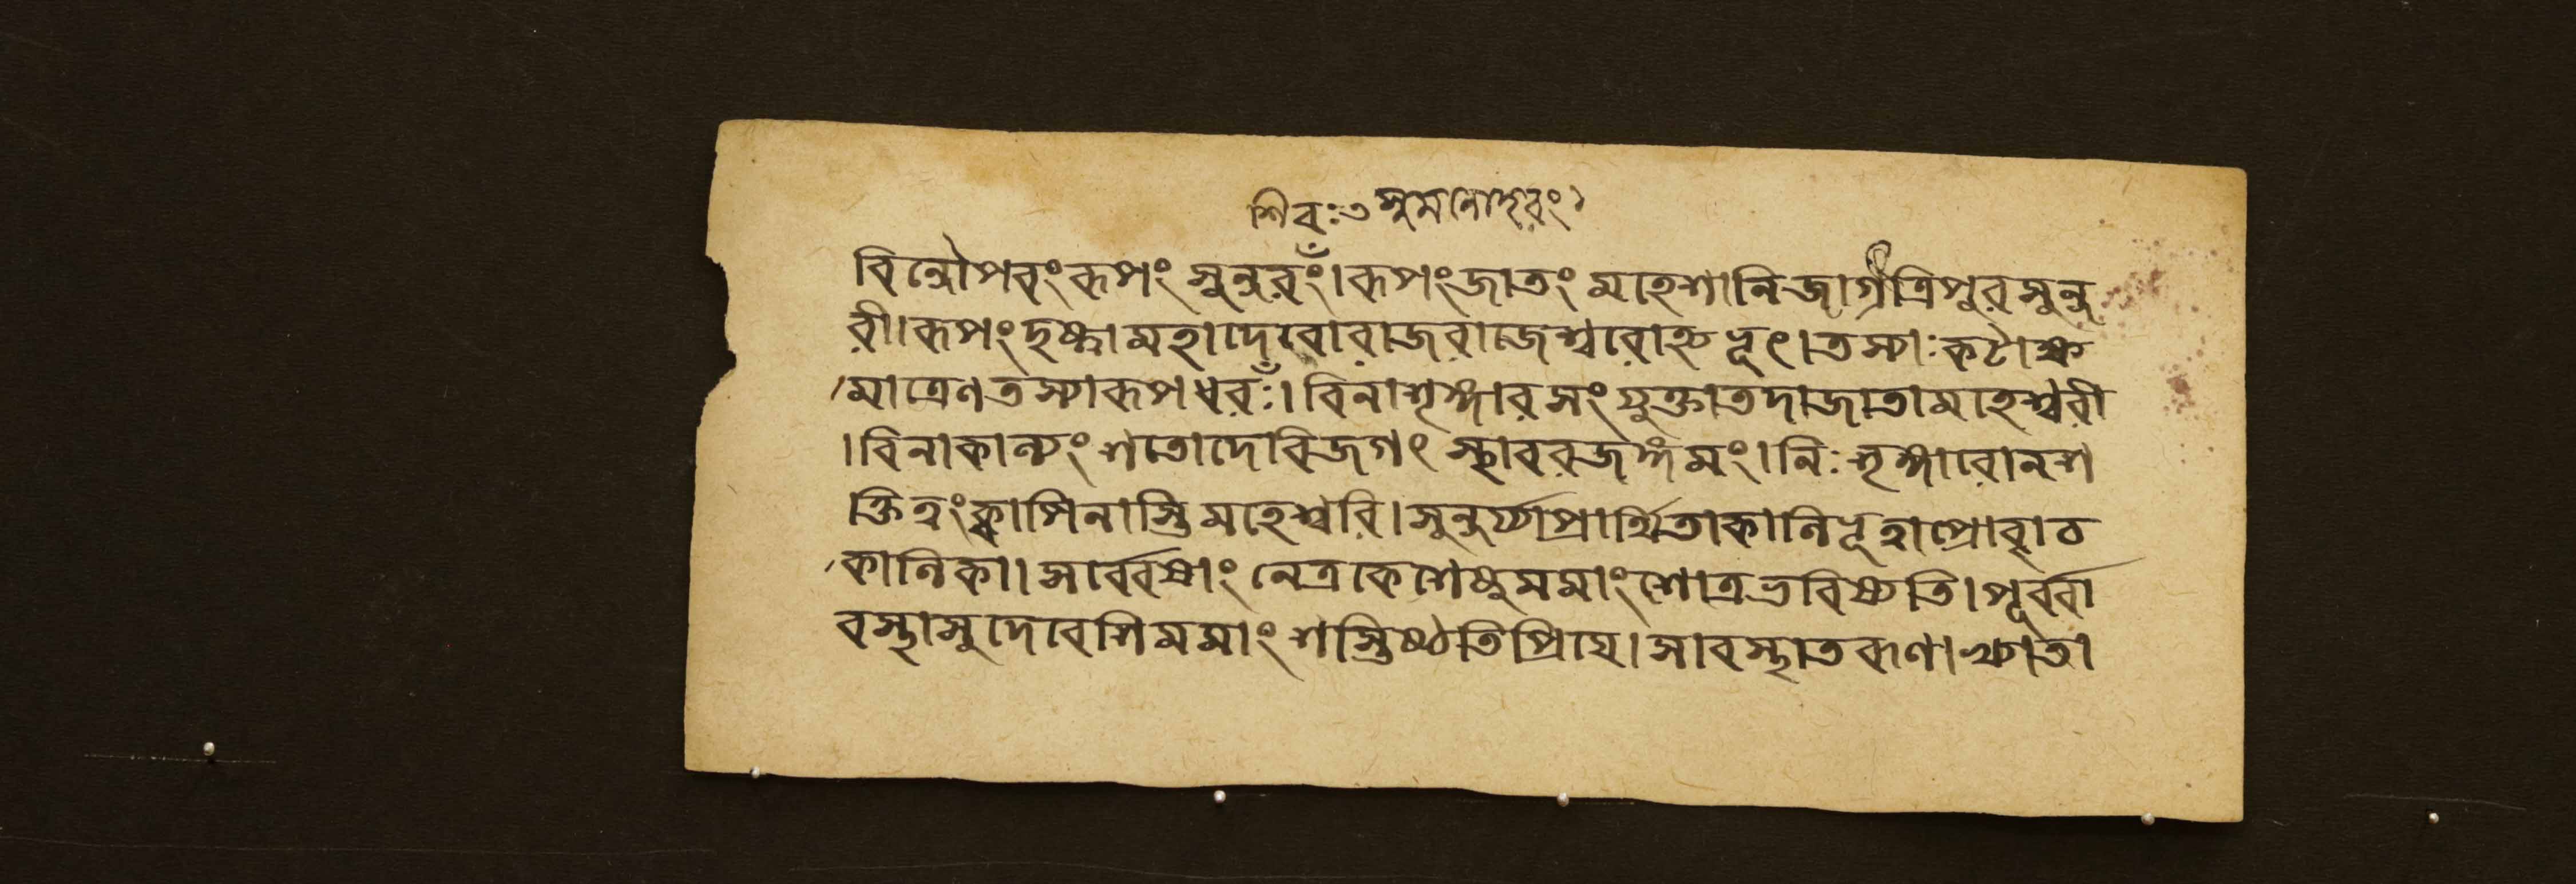 শিবঃ ৩ সুমনোহরং
বিন্দোপরংরূপং সুন্দরং।রূপংজাতং মহেশানিজাগ্রত্রিপুরসুন্দ
রী।রূপংদৃষ্ট্বামহাদেবোরাজরাজেশ্বরোঽভূৎ।তস্যাঃকটাক্ষ
মাত্রেণতস্যারূপধরঃ।বিনাশৃঙ্গারসংযুক্তাতদাজাতামহেশ্বরী
।বিনাকান্ত্যংশতোদেবিজগৎ স্থাবরজঙ্গমং।নিঃশৃঙ্গারোনশ
ক্তিত্বংক্বাপিনাস্তিমহেশ্বরি।সুন্দর্য্যাপ্রার্থিতাকালিভূত্বাপ্রোবাচ
কালিকা।সর্ব্বেষাং নেত্রকেশেষুমমাংশোত্রভবিষ্যতি।পূর্ব্বা
বস্থাসুদেবেশিমমাংশস্তিষ্ঠতিপ্রিয়ে।সাবস্থাতরুণাখ্যাতা